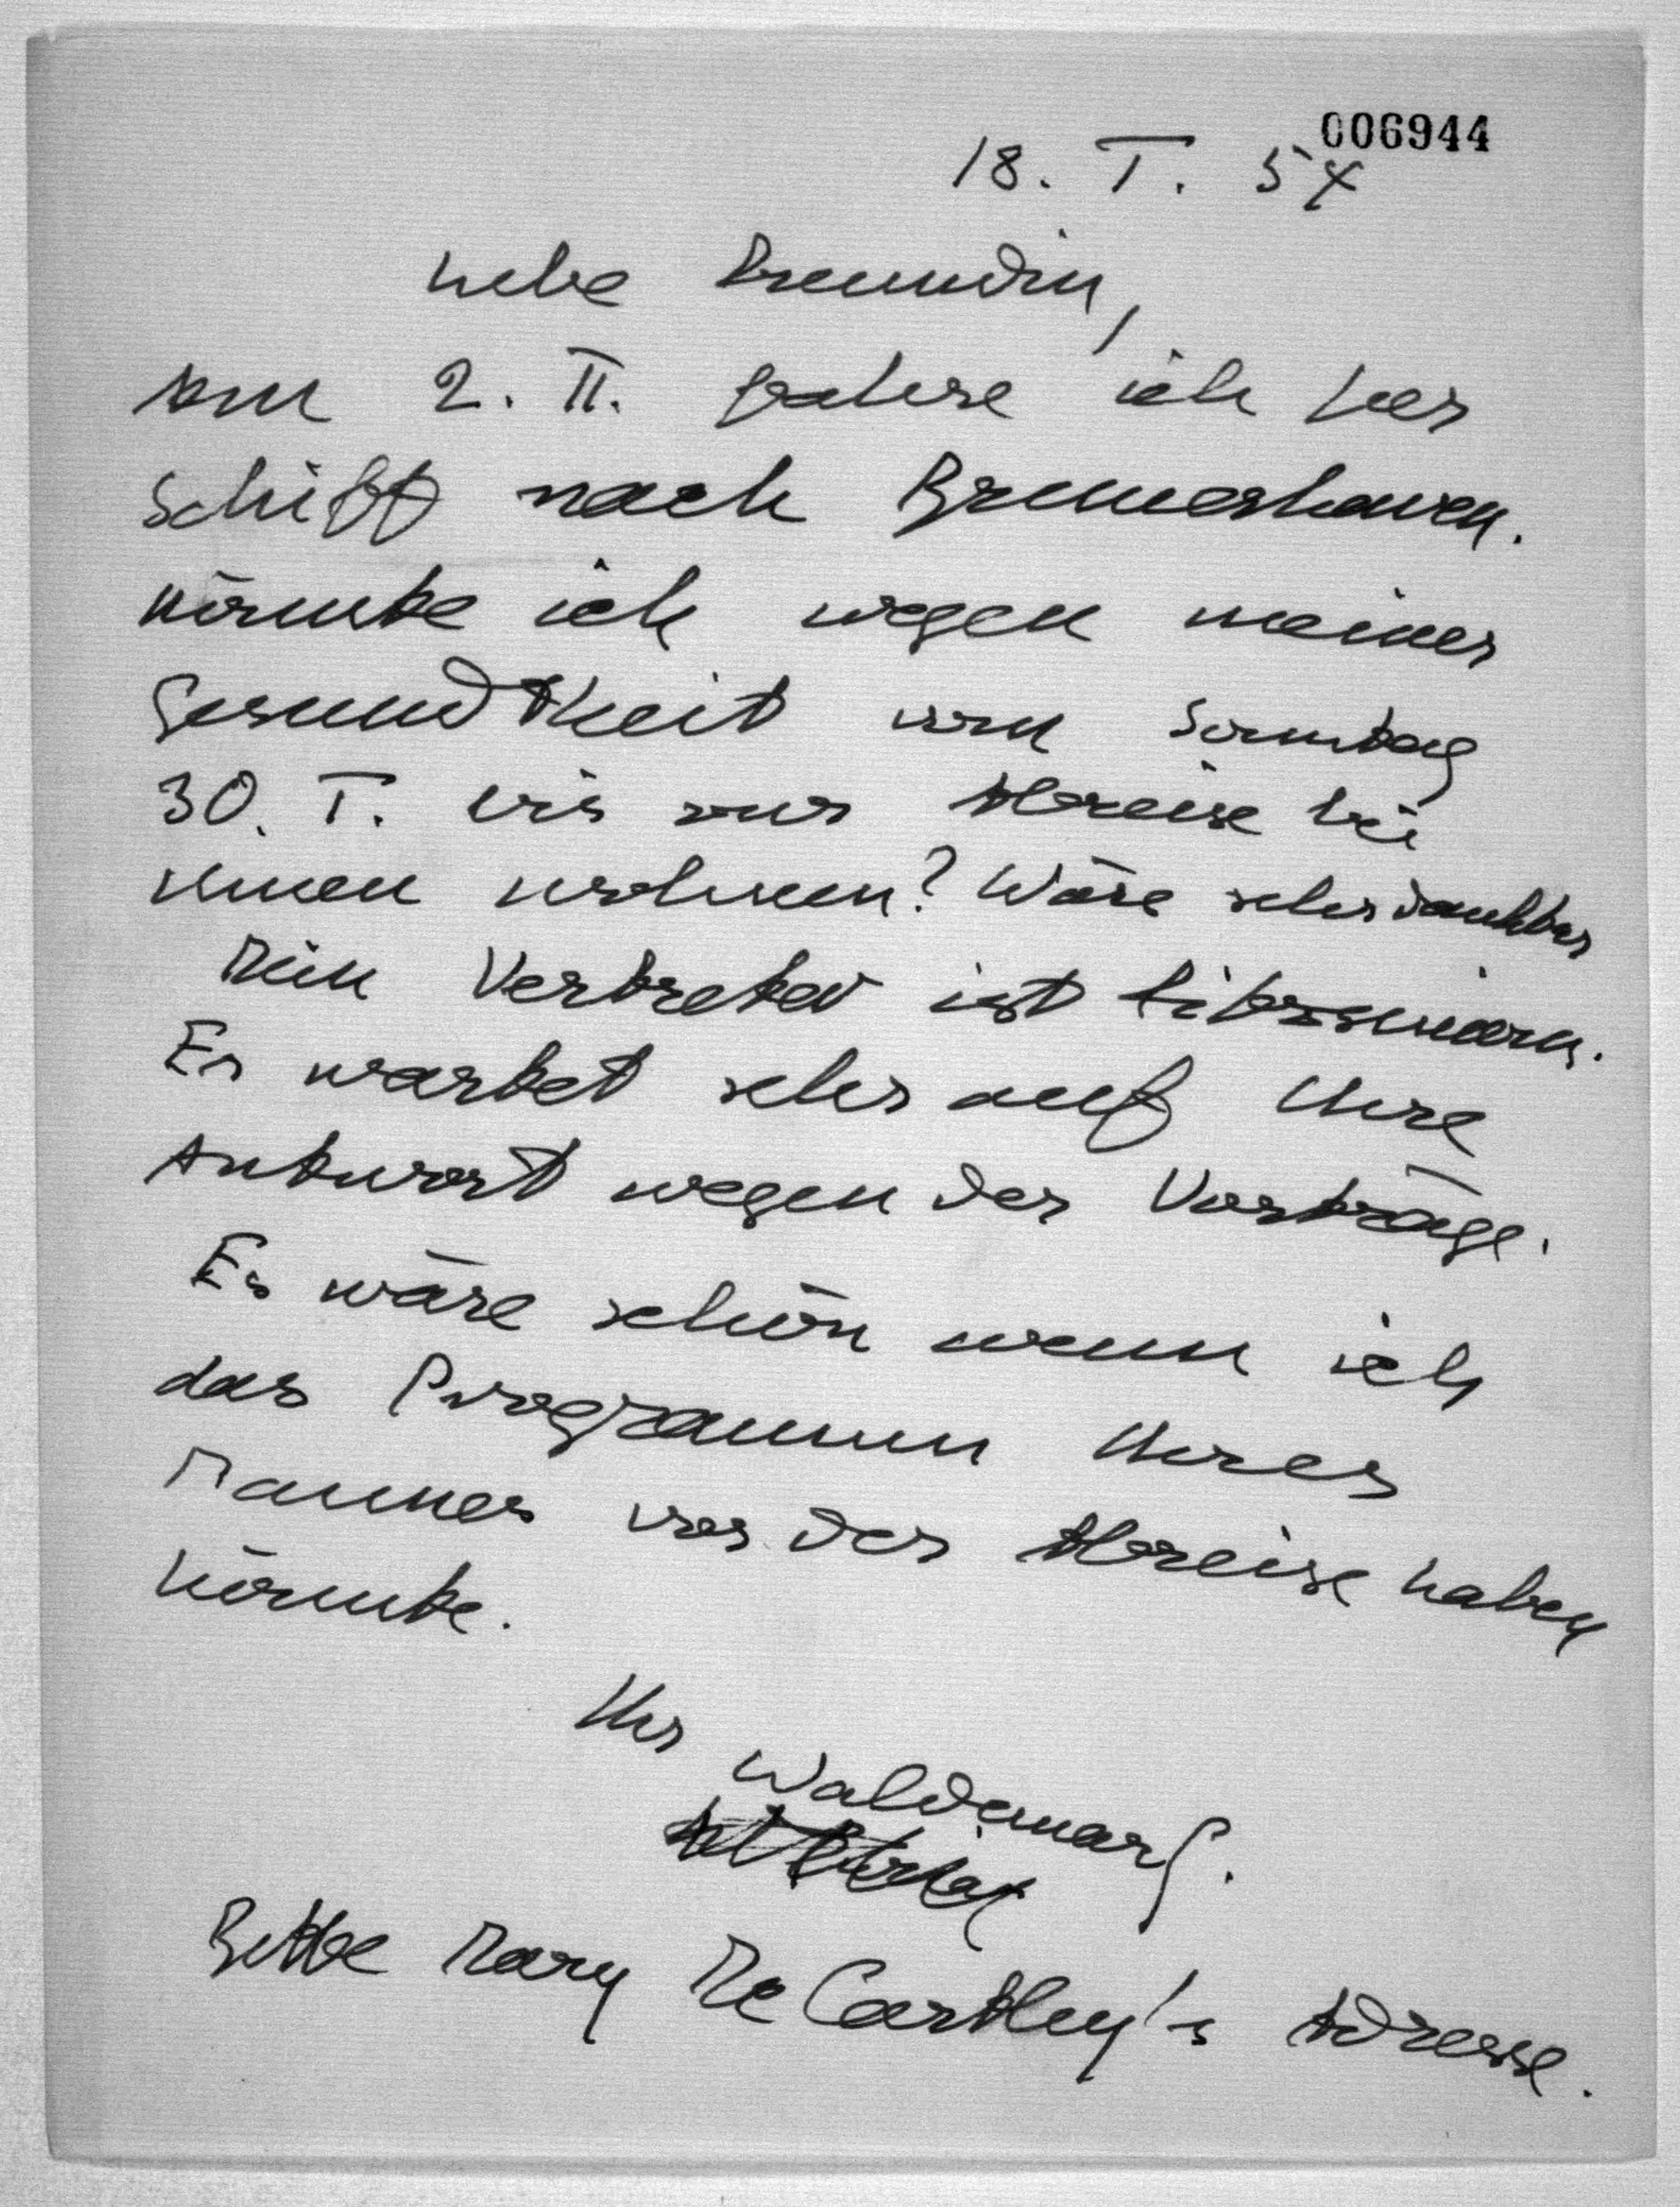 006944
18. I. 54
Liebe Freundin,
am 2. II. fahre ich per
Schiff nach Bremerhaven.
Könnte ich wegen meiner
Gesundheit von Sonntag
30. I. bis zur Abreise bei
Ihnen wohnen? Wäre sehr dankbar
Mein Vertreter ist
Er wartet sehr auf Ihre
Antwort wegen der Vorträge.
Es wäre schön wenn ich
das Programm Ihres
Mannes vor der Abreise haben
könnte.
Ihr Waldemar G.
Bitte Mary McCarthy's Adresse.